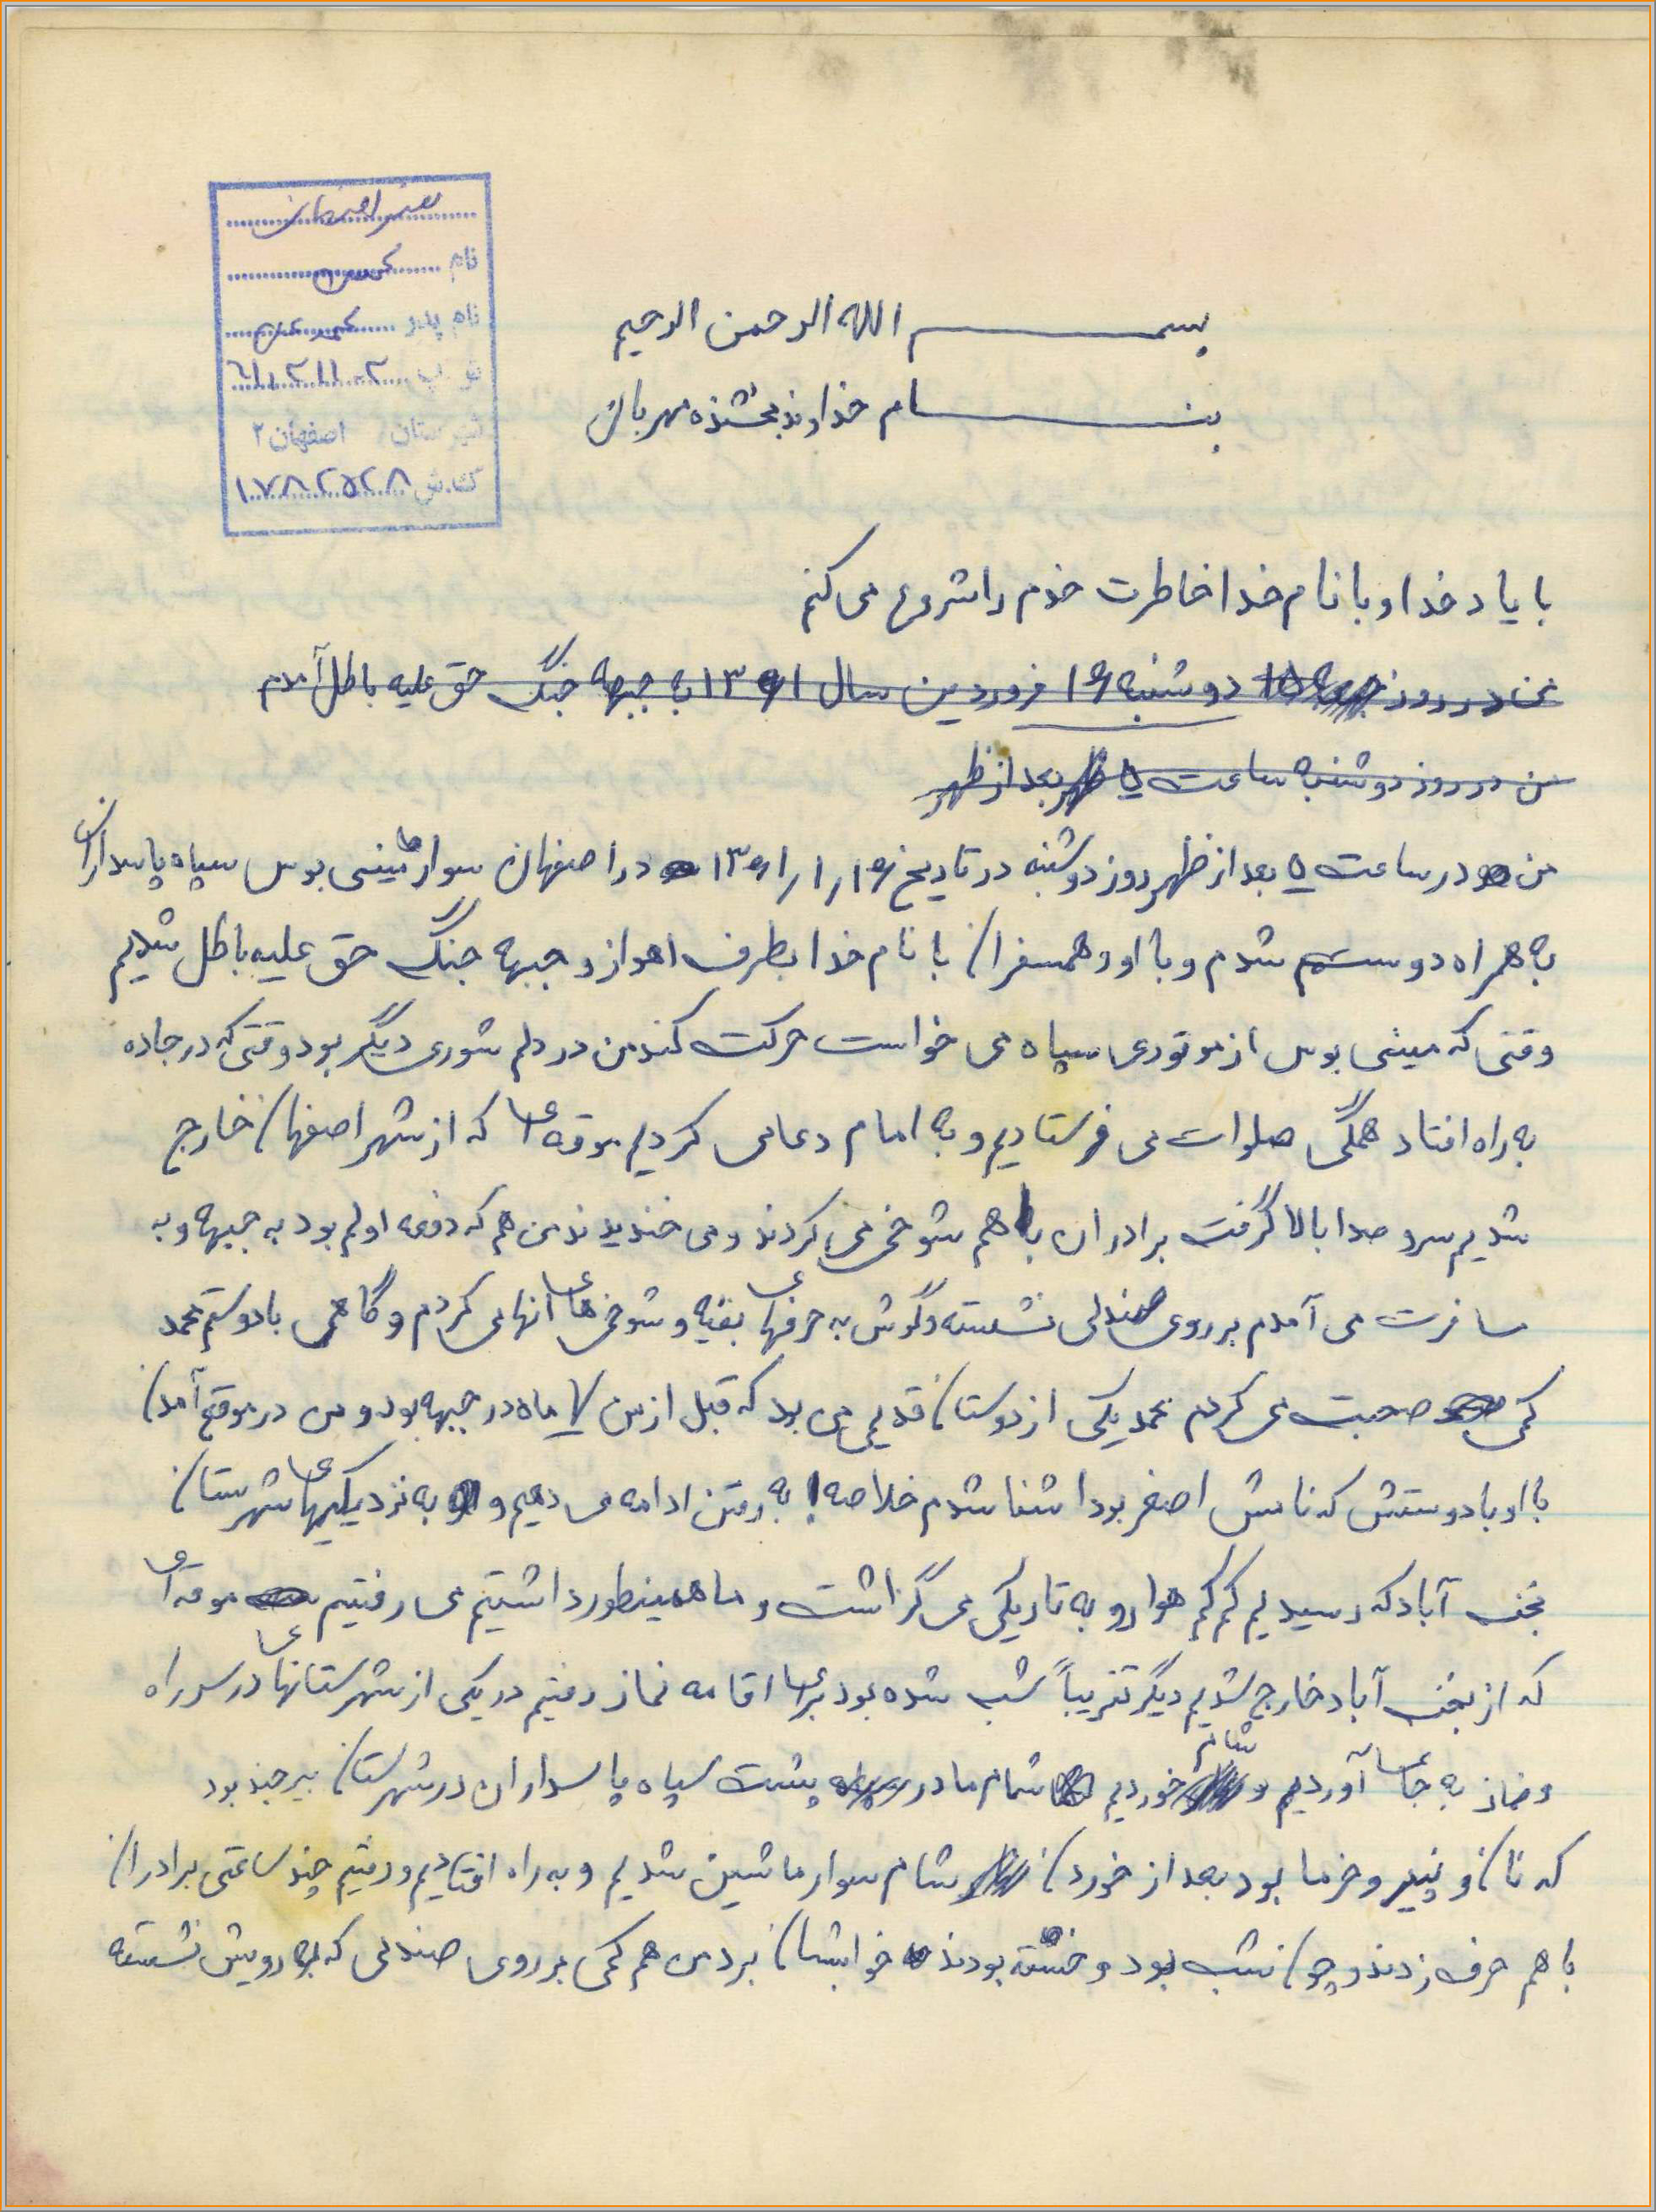 نام
نام پدر
شهرستان اصفهان ۲
کد.ش ۱۷۸۲۵۲۸
بسم الله الرحمن الرحیم
بنام خداوند بخشنده مهربان
با یاد خدا و با نام خدا خاطرت خدم را شروع می کنم
من در روز دوشنبه ۱۶ فروردین سال ۱۳۶۱ به جبهه جنگ حق علیه باطل آمدم
من در روز دوشنبه ساعت ۵ ظهر بعد از ظهر
من در ساعت ۵ بعد از ظهر روز دوشنبه در تاریخ ۱۳۶۱/۱/۱۶ در اصفهان سوار مینی بوس سپاه پاسداران
به همراه دوستم شدم و با او و همسفران با نام خدا بطرف اهواز و جبهه جنگ حق علیه باطل شدیم
وقتی که مینی بوس از موتوری سپاه می خواست حرکت کند من در دلم شوری دیگر بود وقتی که در جاده
به راه افتاد همگی صلوات می فرستادیم و به امام دعا می کردیم موقه ای که از شهر اصفهان خارج
شدیم سر و صدا بالا گرفت برادران با هم شوخی می کردند و می خندیدند من هم که دفعه اولم بود به جبهه و به
مسافرت می آمدم بر روی صندلی نشسته و گوش به حرفهای بقیه و شوخی های انها می کردم و گاهی با دوستم محمد
کمی صحبت می کردم محمد یکی از دوستان قدیمی من بود که قبل از من ۷ ماه در جبهه بود و من در موقع آمدن
با او با دوستش که نامش اصغر بود اشنا شدم خلاصه به رفتن ادامه می دهیم و به نزدیکیهای شهرستان
نجف آباد که رسیدیم کم کم هوا رو به تاریکی می گزاشت و ما همینطور داشتیم می رفتیم موقه ای
که از نجف آباد خارج شدیم دیگر تقریباً شب شده بود برای اقامه نماز رفتیم در یکی از شهرستانهای در سر راه
و نماز به جای آوردیم و شام خوردیم شام ما در پشت سپاه پاسداران در شهرستان بیرجند بود
که نان و پنیر و خرما بود بعد از خوردن شام سوار ماشین شدیم و به راه افتادیم و رفتیم چند ساعتی برادران
با هم حرف زدند و چون شب بود و خسته بودند خوابشان برد من هم کمی بر روی صندلی که به رویش نشسته